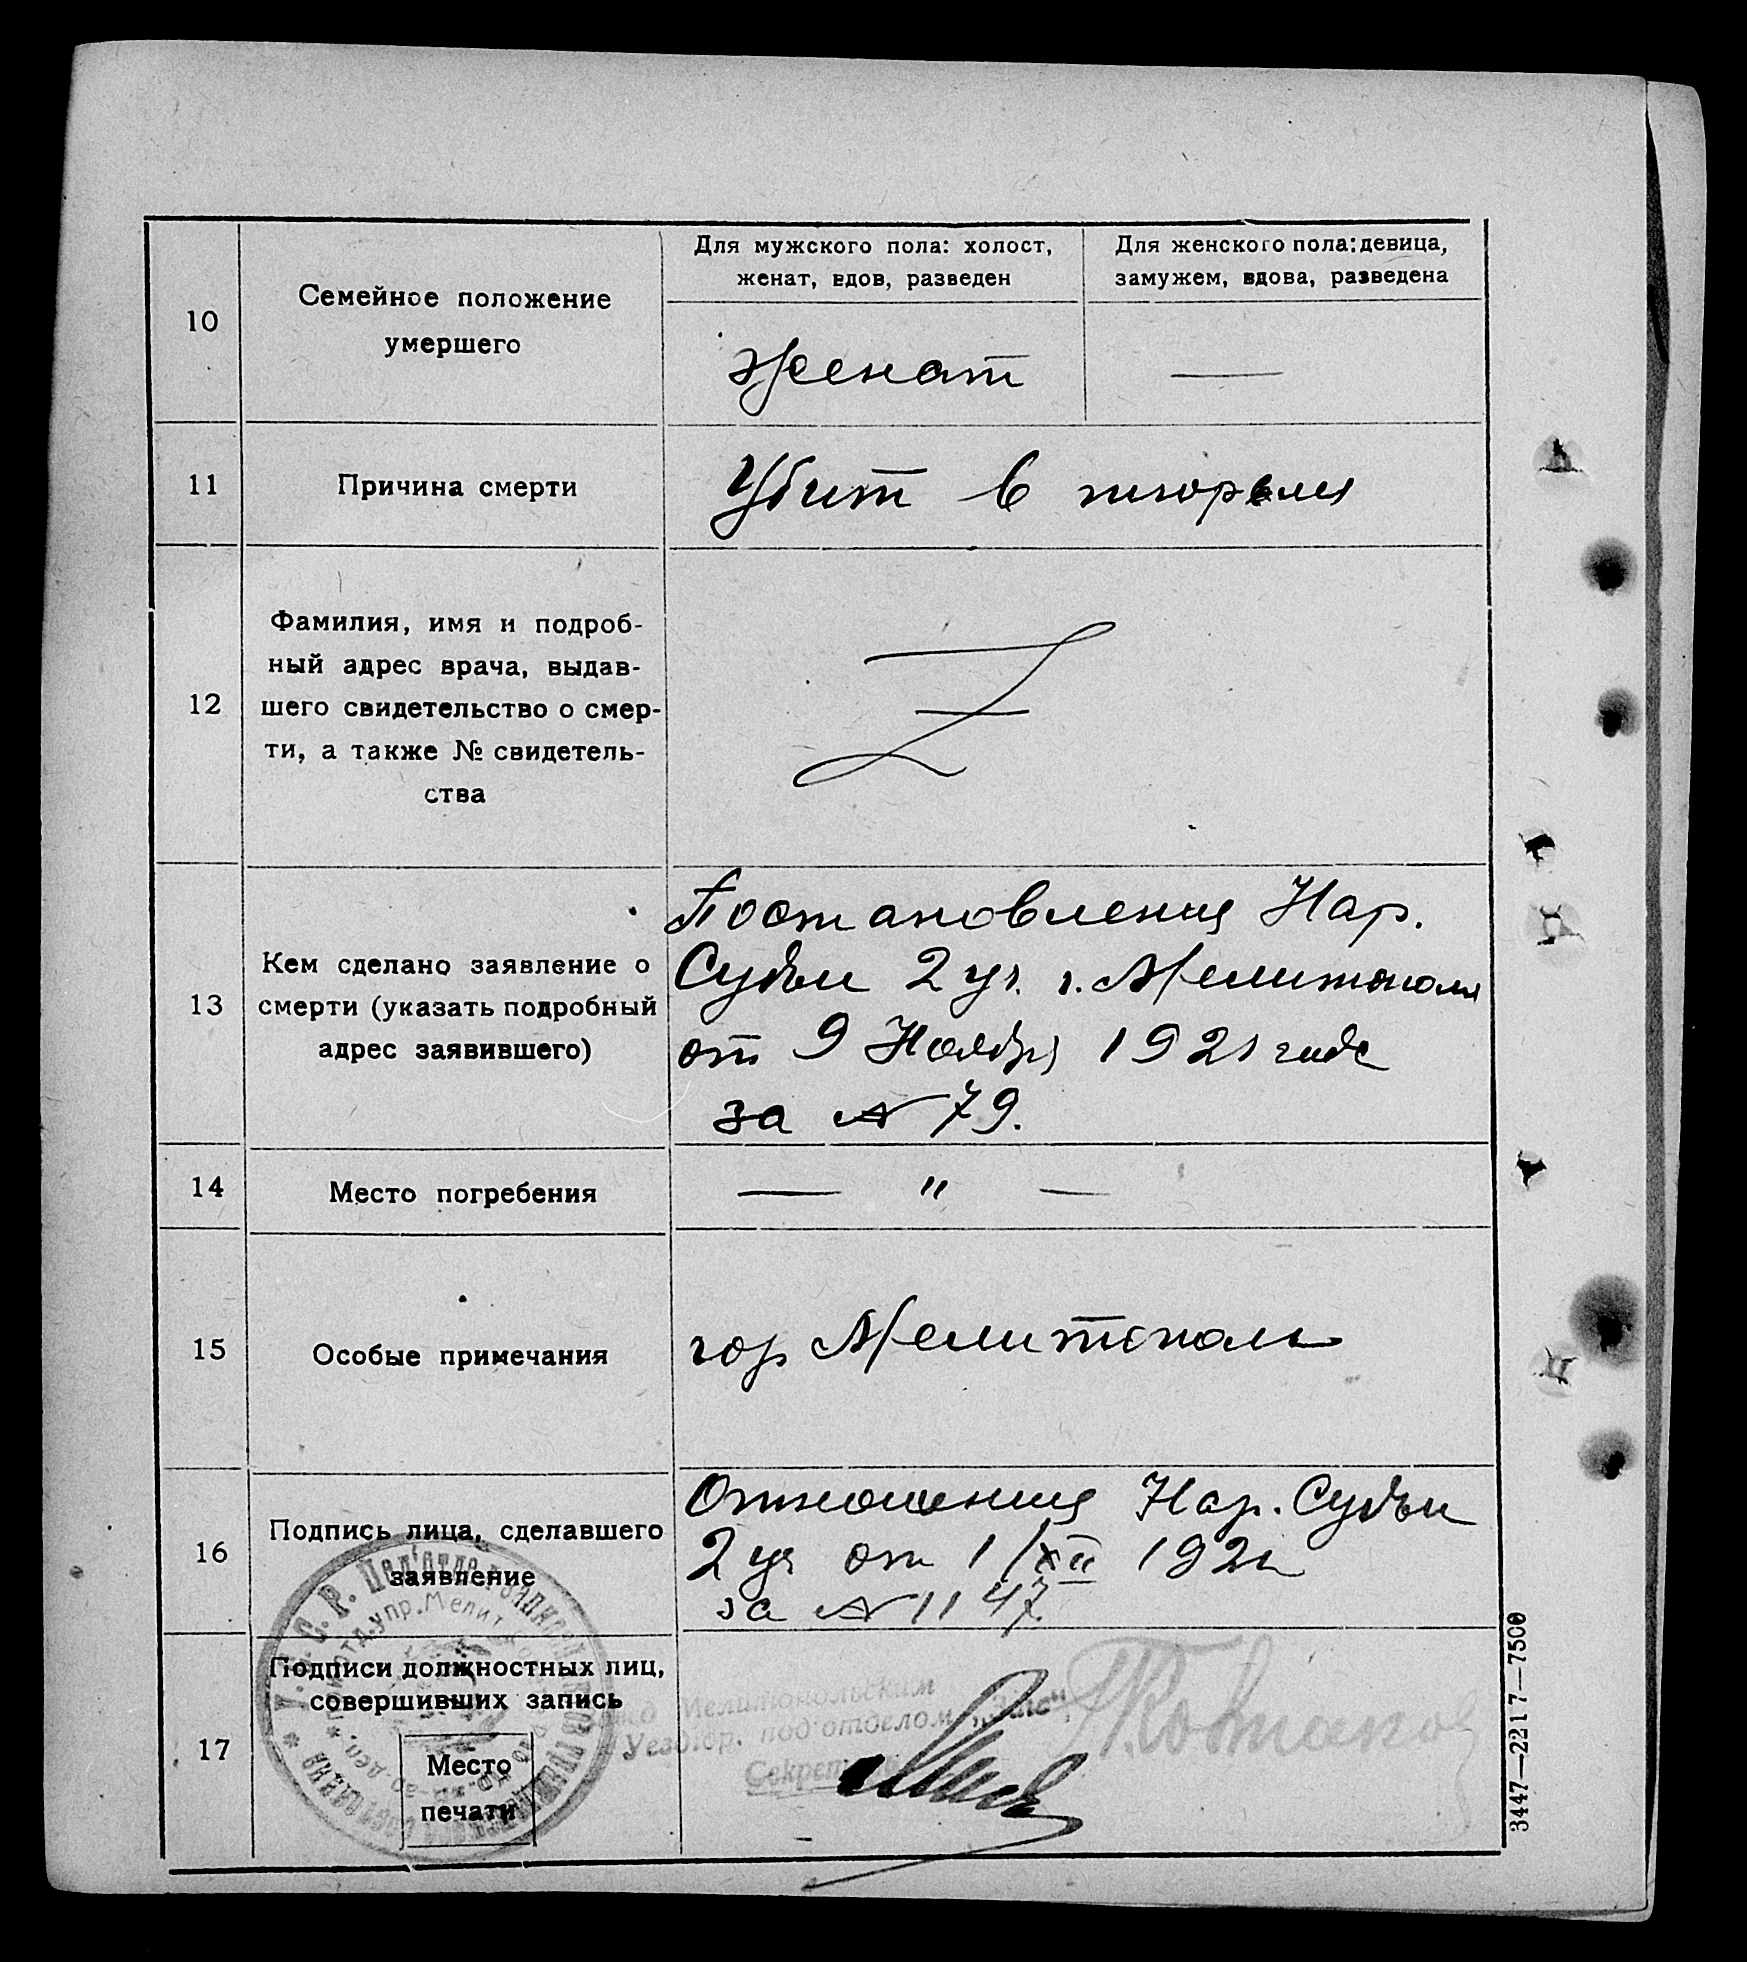 10
Семейное положение
умершего
Для мужского пола: холост,
женат, вдов, разведен
Для женского пола: девица,
замужем, вдова, разведена
женат
—
11
Причина смерти
Убит в
12
Фамилия, имя и подроб-
ный адрес врача, выдав-
шего свидетельство о смер-
ти, а также № свидетель-
ства
13
Кем сделано заявление о
смерти (указать подробный
адрес заявившего)
Постановления Нар.
Судьи 2 уч. г. Мелитополя
от 9 Ноября 1921 года
за № 79.
14
Место погребения
— " —
15
Особые примечания
гор Мелитополь
16
Подпись лица, сделавшего
заявление
Отношения Нар. Судьи
2 уч от 1/XII 192
за № 1147.
17
Подписи должностных лиц,
совершивших запись
Место
печати
Мелитопольским
под'отделом „Загс"
3447—2217—7500